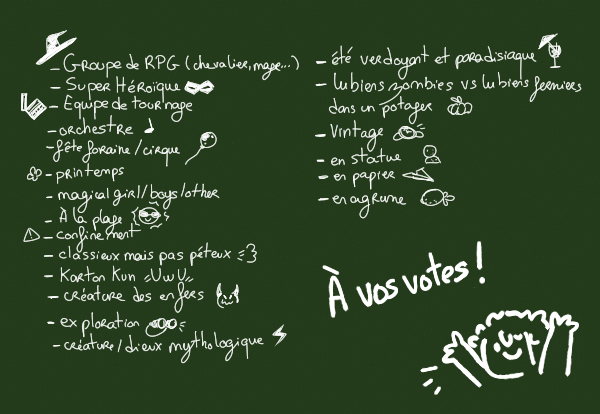 - Groupe de RPG (chevalier, mage...)
- Super Héroïque
- Equipe de tournage
- orchestre
- fête foraine / cirque
- printemps
- magical girl/boys/other
- À la plage
- confinement
- classieux mais pas péteux
- Karton Kun UwU
- créature des enfers
- exploration
- créature/dieux mythologique
- été verdoyant et paradisiaque
- lubiens zombies vs lubiens fermiers
dans un potager
- Vintage
- en statue
- en papier
- en agrume
À vos votes !